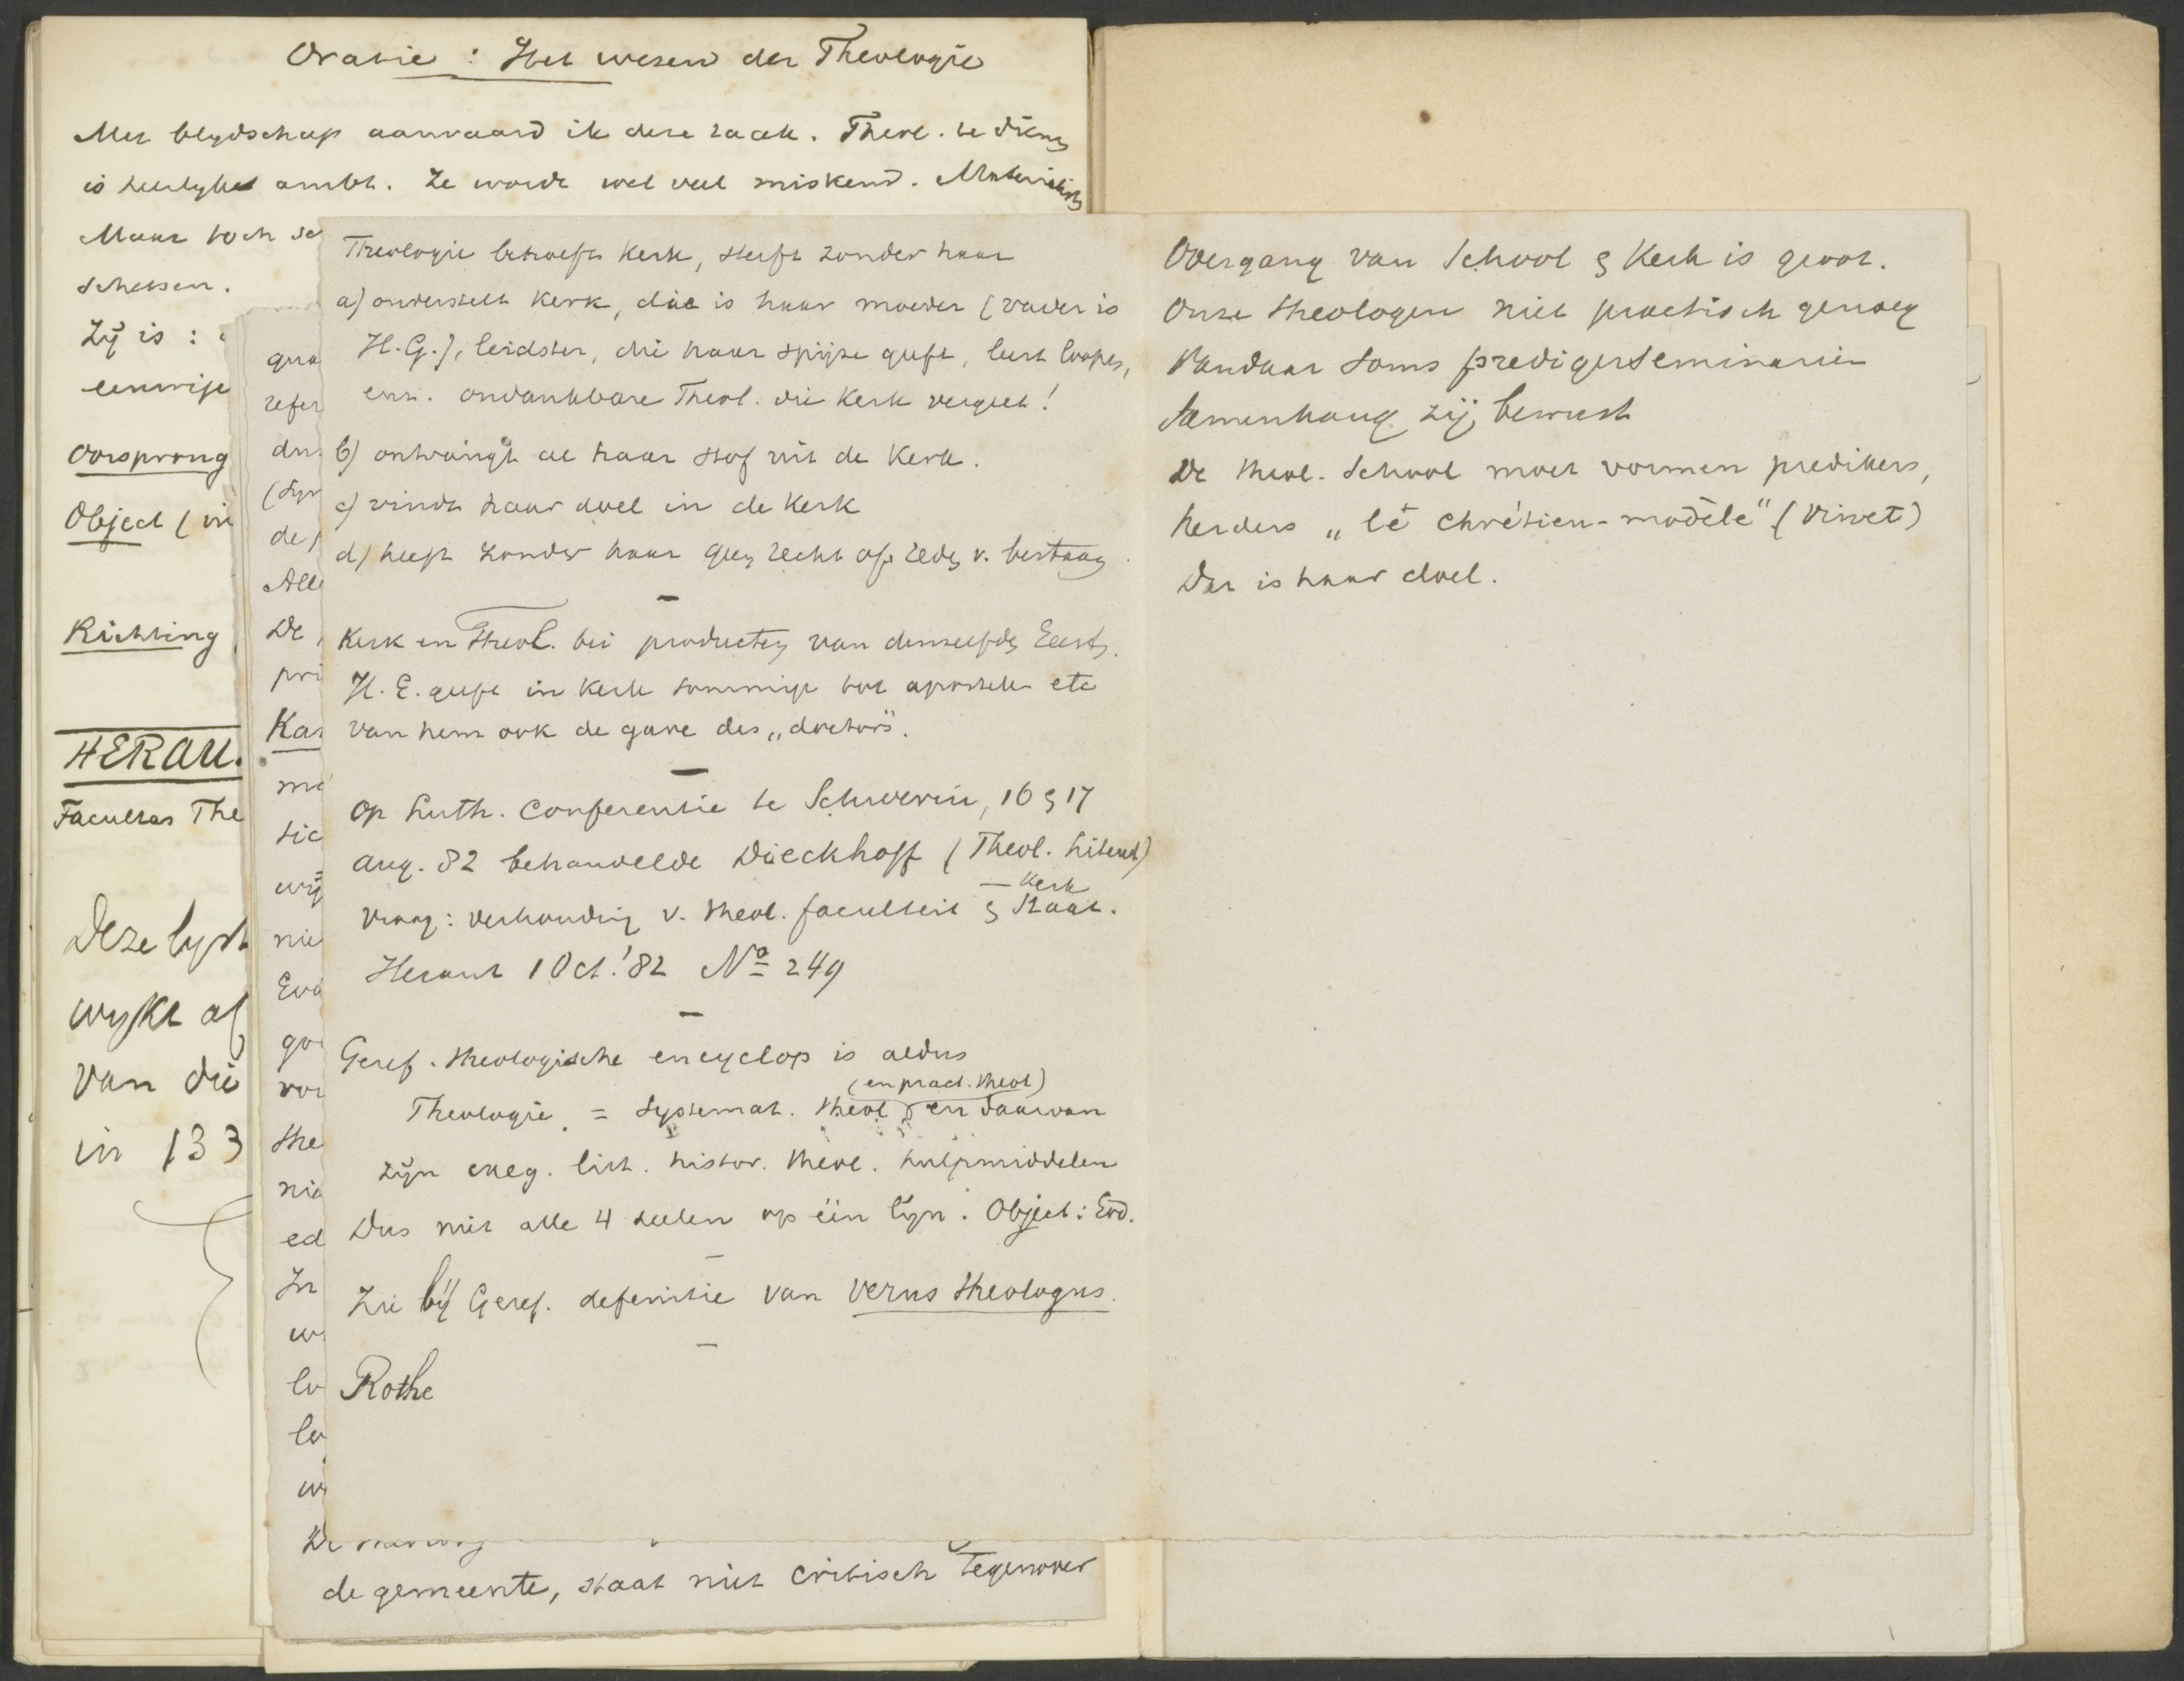 Oratie : Het wesen der Theologie
Met blydschap aanvaard ik deze taak. Theol. te dienen
is heerlyke ambt. Ze wordt wel veel miskend.
Maar toch
schetsen.
Zij is :
eenwige
Oorsprong
Object (in
Richting
HERAU.
Facultas The
Deze lyst
wykt af
van die
in 133
gra
refer
dus
de
Alle
De
pri
Kas
sic
wij
nie
Eva
voo
the
nie
ed
In
lo
Theologie behoeft Kerk, sterft zonder haar
a) onderstelt Kerk, die is haar moeder (vader is
H.G.), leidster, die haar spijze geeft, leert loopen,
enz. ondankbare Theol. die Kerk vergeet!
b) ontvangt al haar stof uit de Kerk.
c) vindt haar doel in de Kerk
d) heeft zonder haar geen recht of reden v. bestaan
Kerk en Theol. bei producten van denzelfden Geest.
H.G. geeft in Kerk sommige tot apostelen etc
van hem ook de gave des „doctors".
Op Luth. Conferentie te Schwerin, 16 & 17
Aug. 82 behandelde Dieckhoff (Theol. Literat)
vraag: verhouding v. theol. faculteit & Staat.
— Kerk
Heraut 1 Oct. '82 No 249
Geref. theologische encyclop is aldus
(en pract. theol)
Theologie = Systemat. theol en daarvan
zijn exeg. hist. theol. hulpmiddelen
Dus niet alle 4 deelen op één lijn. Object: God.
Zie bij Geref. defenitie van verus theologus.
Rothe
de gemeente, staat niet critisch tegenover
Overgang van School & Kerk is groot.
Onze theologen niet practisch genoeg
Vandaar soms predigerseminarien
Samenhang zij bewust
De theol. School moet vormen predikers,
herders „le chrétien-modèle" (Vinet)
Dat is haar doel.